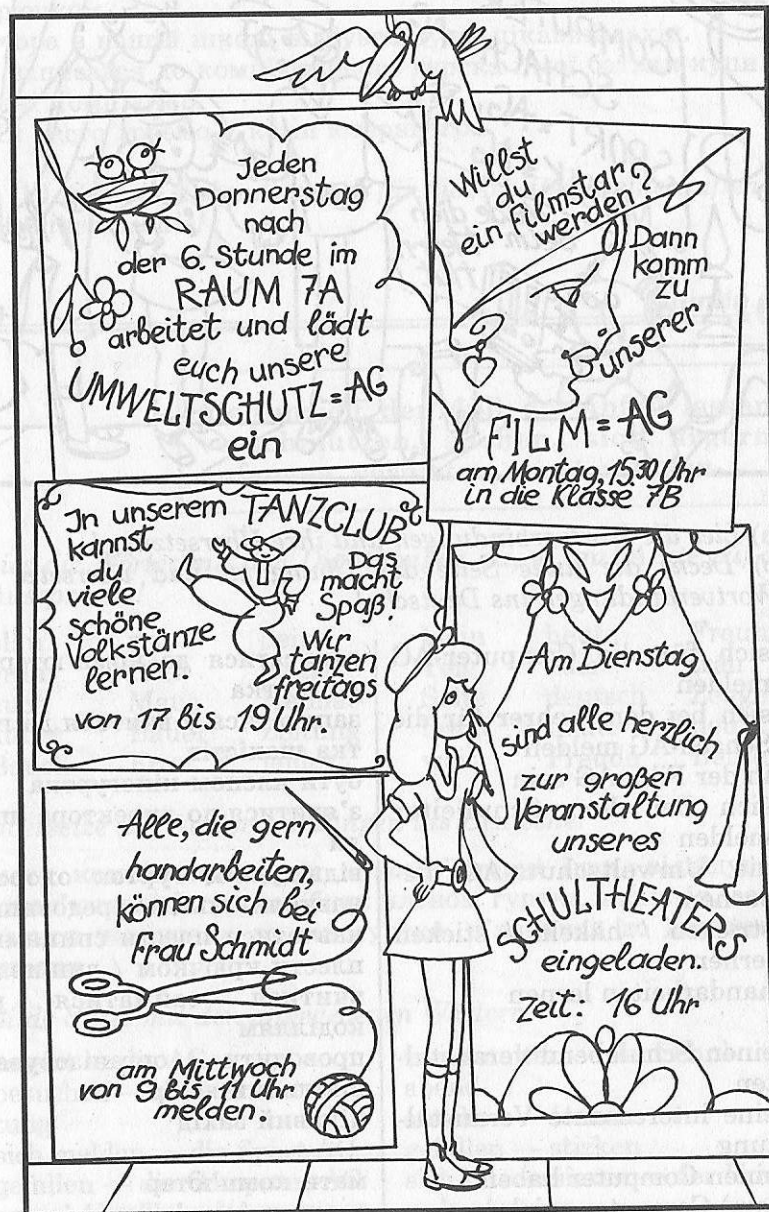 Jeden
Donnerstag
nach
der 6. Stunde im
RAUM 7A
arbeitet und lädt
euch unsere
UMWELTSCHUTZ=AG
ein
Willst
du
ein Filmstar
werden?
Dann
komm
zu
unserer
FILM=AG
am Montag, 15³⁰ Uhr
in die Klasse 7B
In unserem TANZCLUB
kannst
du
viele
schöne
Volkstänze
lernen.
Das
macht
Spaß!
Wir
tanzen
freitags
von 17 bis 19 Uhr.
Am Dienstag
sind alle herzlich
zur großen
Veranstaltung
unseres
SCHULTHEATERS
eingeladen.
Zeit: 16 Uhr
Alle, die gern
handarbeiten,
können sich bei
Frau Schmidt
am Mittwoch
von 9 bis 11 Uhr
melden.